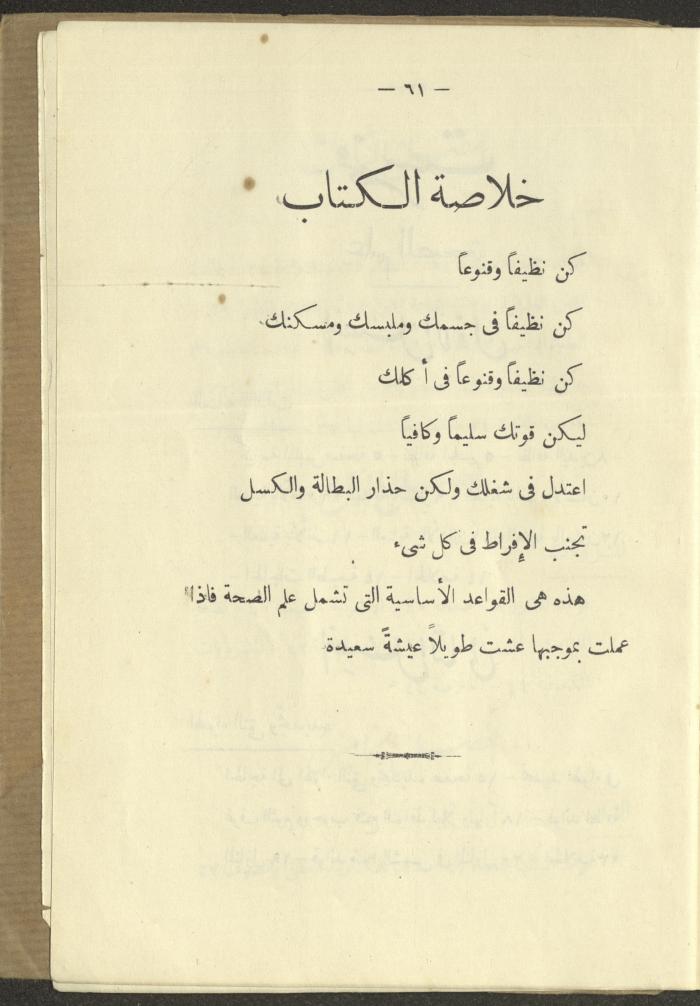 — ٦١ —
خلاصة الكتاب
كن نظيفاً وقنوعاً
كن نظيفاً فى جسمك وملبسك ومسكنك
كن نظيفاً وقنوعاً فى أكلك
ليكن قوتك سليماً وكافياً
اعتدل فى شغلك ولكن حذار البطالة والكسل
تجنب الإفراط فى كل شىء
هذه هى القواعد الأساسية التى تشمل علم الصحة فاذا
عملت بموجبها عشت طويلاً عيشةً سعيدة